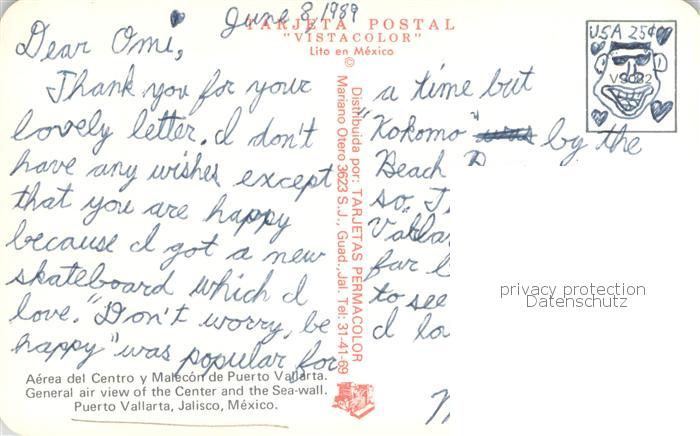 June 8, 1989
TARJETA POSTAL
"VISTACOLOR"
Lito en México
©
Dear Omi,
Thank you for your
lovely letter. I don't
have any wishes except
that you are happy
because I got a new
skateboard which I
love. "Don't worry, be
happy" was popular for
Aérea del Centro y Malecón de Puerto Vallarta.
General air view of the Center and the Sea-wall.
Puerto Vallarta, Jalisco, México.
Distribuida por: TARJETAS PERMACOLOR
Mariano Otero 3623 S.J., Guad., Jal. Tel: 31-41-69
USA 25¢
VS082
a time but
"Kokomo" by the
Beach
so.
far
to see
I
privacy protection
Datenschutz